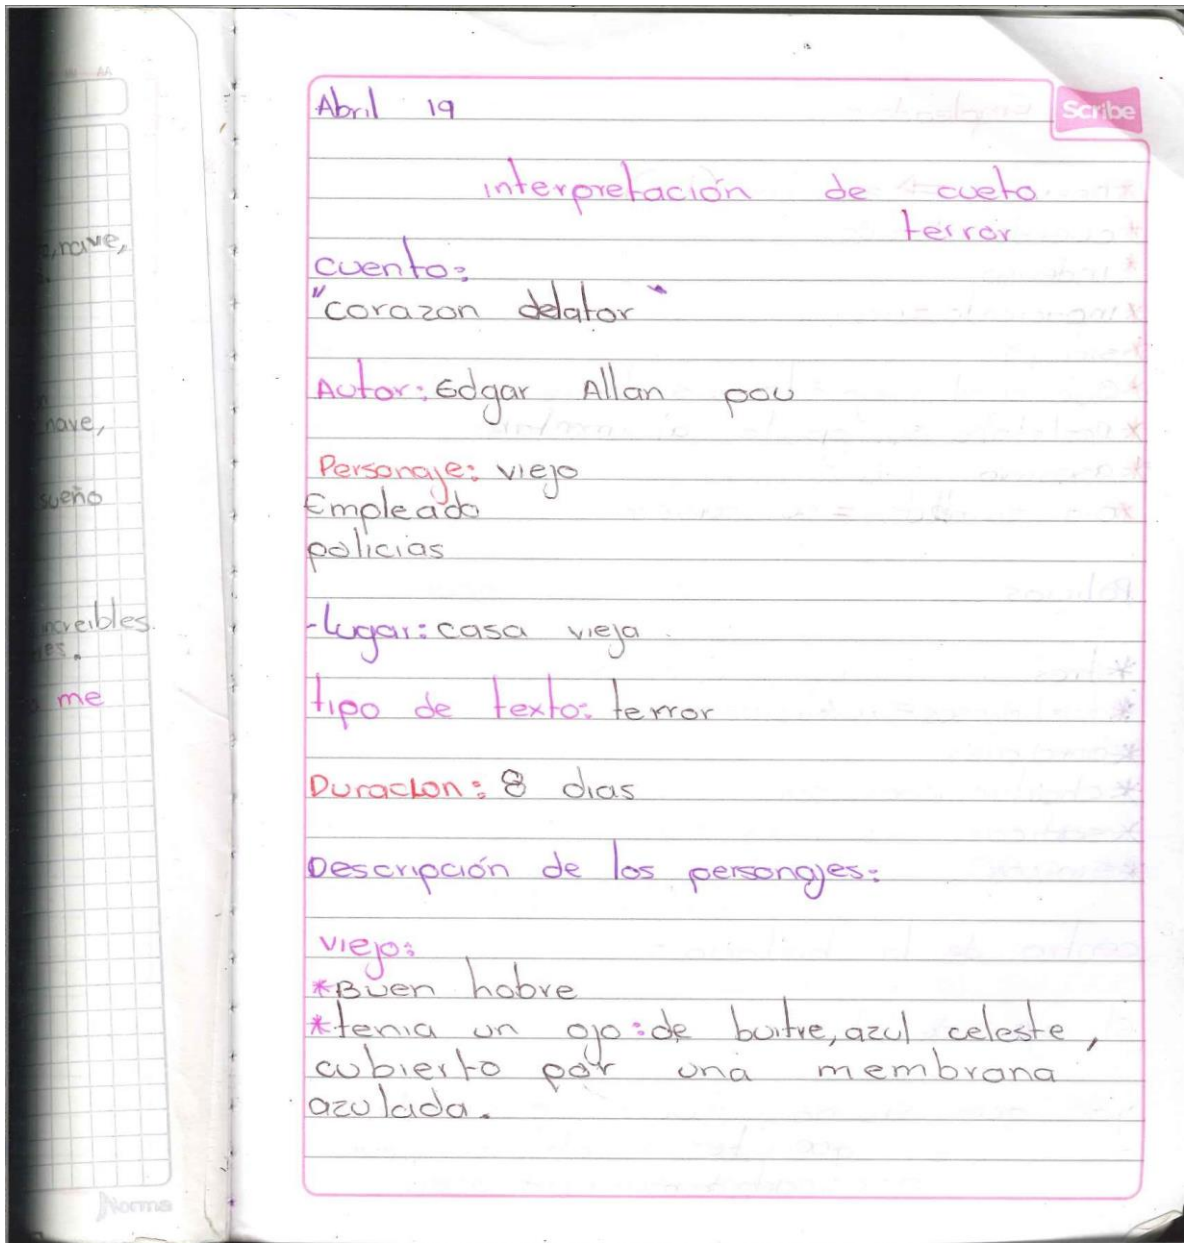 nave,
nave,
sueño
increibles.
me
Abril 19
Scribe
interpretación de cueto
terror
cuento:
"corazon delator"
Autor: Edgar Allan pou
Personaje: viejo
Empleado
policias
-lugar: casa vieja.
tipo de texto: terror
Duracion: 8 dias
Descripción de los personajes:
viejo:
*Buen hobre
*tenia un ojo: de buitre, azul celeste,
cubierto por una membrana
azulada.
Norma